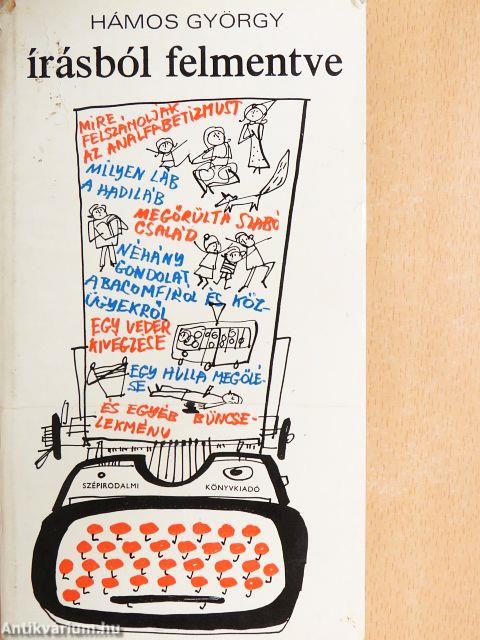 HÁMOS GYÖRGY
írásból felmentve
MIRE
FELSZÁMOLJÁK
AZ ANALFABÉTIZMUST
MILYEN LÁB
A HADILÁB
MEGŐRÜLT A SZABÓ
CSALÁD
NÉHÁNY
GONDOLAT
A BACOMFIROL ÉS KÖZ-
ÜGYEKRŐL
EGY VEDER
KIVÉGZÉSE
EGY HULLA MEGÖLÉ-
SE
ÉS EGYÉB BŰNCSE-
LEKMÉNY
SZÉPIRODALMI KÖNYVKIADÓ
Antikvarium.hu